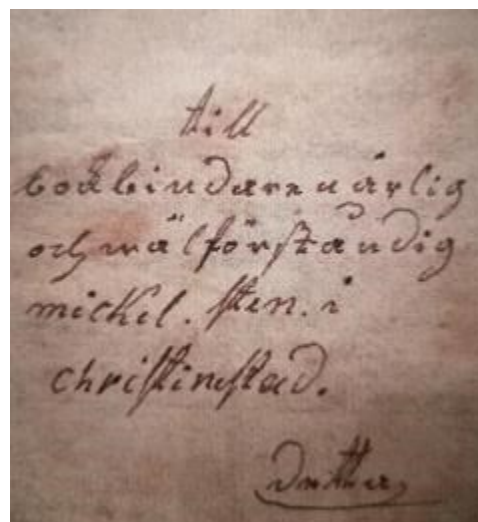 till
bockbindaren ärlig
och wälförståndig
mickel. sten. i
christinestad.